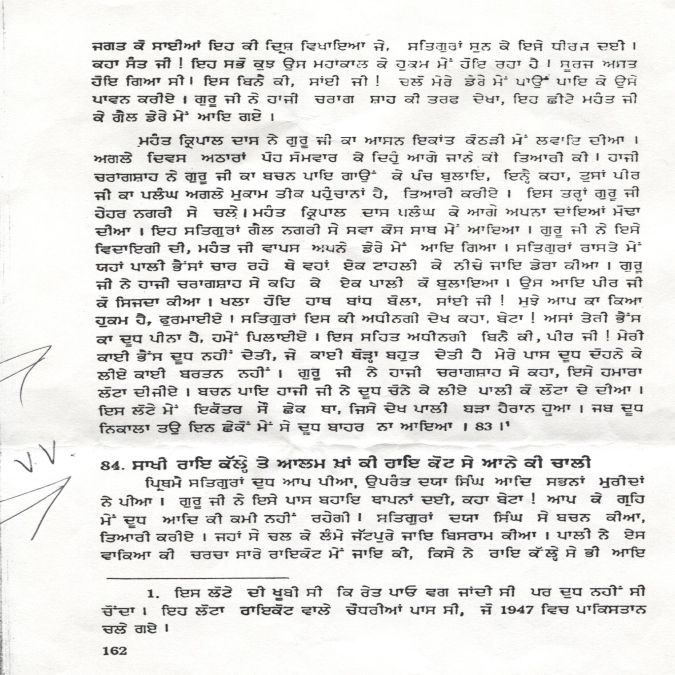 ਜਗਤ ਕੋ ਸਾਈਆਂ ਇਹ ਕੀ ਦ੍ਰਿਸ਼ ਵਿਖਾਇਆ ਜੇ, ਸਤਿਗੁਰਾਂ ਸੁਨ ਕੇ ਇਸੇ ਧੀਰਜ ਦਈ।
ਕਹਾ ਸੰਤ ਜੀ! ਇਹ ਸਭੋ ਕੁਝ ਉਸ ਮਹਾਕਾਲ ਕੇ ਹੁਕਮ ਮੇਂ ਹੋਇ ਰਹਾ ਹੈ। ਸੂਰਜ ਅਸਤ
ਹੋਇ ਗਿਆ ਸੀ। ਇਸ ਬਿਨੈ ਕੀ, ਸਾਂਈ ਜੀ! ਚਲੋ ਮੇਰੇ ਡੇਰੇ ਮੇਂ ਪਾਉਂ ਪਾਇ ਕੇ ਉਸੇ
ਪਾਵਨ ਕਰੀਏ। ਗੁਰੂ ਜੀ ਨੇ ਹਾਜੀ ਚਰਾਗ ਸ਼ਾਹ ਕੀ ਤਰਫ ਦੇਖਾ, ਇਹ ਛੀਟੇ ਮਹੰਤ ਜੀ
ਕੇ ਗੈਲ ਡੇਰੇ ਮੇਂ ਆਇ ਗਏ।
ਮਹੰਤ ਕ੍ਰਿਪਾਲ ਦਾਸ ਨੇ ਗੁਰੂ ਜੀ ਕਾ ਆਸਨ ਇਕਾਂਤ ਕੋਠੜੀ ਮੇਂ ਲਵਾਇ ਦੀਆ।
ਅਗਲੇ ਦਿਵਸ ਅਠਾਰਾਂ ਪੋਹ ਸੋਮਵਾਰ ਕੇ ਦਿਹੁੰ ਆਗੇ ਜਾਨੇ ਕੀ ਤਿਆਰੀ ਕੀ। ਹਾਜੀ
ਚਰਾਗਸ਼ਾਹ ਨੇ ਗੁਰੂ ਜੀ ਕਾ ਬਚਨ ਪਾਇ ਗਾਉਂ ਕੇ ਪੰਚ ਬੁਲਾਇ, ਇਨ੍ਹੇਂ ਕਹਾ, ਤੁਸਾਂ ਪੀਰ
ਜੀ ਕਾ ਪਲੰਘ ਅਗਲੇ ਮੁਕਾਮ ਤੀਕ ਪਹੁੰਚਾਨਾਂ ਹੈ, ਤਿਆਰੀ ਕਰੀਏ। ਇਸ ਤਰ੍ਹਾਂ ਗੁਰੂ ਜੀ
ਹੇਹਰ ਨਗਰੀ ਸੇ ਚਲੇ। ਮਹੰਤ ਕ੍ਰਿਪਾਲ ਦਾਸ ਪਲੰਘ ਕੇ ਆਗੇ ਅਪਨਾ ਦਾਂਇਆਂ ਮੋਢਾ
ਦੀਆ। ਇਹ ਸਤਿਗੁਰਾਂ ਗੈਲ ਨਗਰੀ ਸੇ ਸਵਾ ਕੋਸ ਸਾਥ ਮੇਂ ਆਇਆ। ਗੁਰੂ ਜੀ ਨੇ ਇਸੇ
ਵਿਦਾਇਗੀ ਦੀ, ਮਹੰਤ ਜੀ ਵਾਪਸ ਅਪਨੇ ਡੇਰੇ ਮੇਂ ਆਇ ਗਿਆ। ਸਤਿਗੁਰਾਂ ਰਾਸਤੇ ਮੇਂ
ਯਹਾਂ ਪਾਲੀ ਭੈਂਸਾਂ ਚਾਰ ਰਹੇ ਥੇ ਵਹਾਂ ਏਕ ਟਾਹਲੀ ਕੇ ਨੀਚੇ ਜਾਇ ਡੇਰਾ ਕੀਆ। ਗੁਰੂ
ਜੀ ਨੇ ਹਾਜੀ ਚਰਾਗਸ਼ਾਹ ਸੇ ਕਹਿ ਕੇ ਏਕ ਪਾਲੀ ਕੋ ਬੁਲਾਇਆ। ਉਸ ਆਇ ਪੀਰ ਜੀ
ਕੋ ਸਿਜਦਾ ਕੀਆ। ਖਲਾ ਹੋਇ ਹਾਥ ਬਾਂਧ ਬੋਲਾ, ਸਾਂਈ ਜੀ! ਮੁਝੇ ਆਪ ਕਾ ਕਿਆ
ਹੁਕਮ ਹੈ, ਫੁਰਮਾਈਏ। ਸਤਿਗੁਰਾਂ ਇਸ ਕੀ ਅਧੀਨਗੀ ਦੇਖ ਕਹਾ, ਬੇਟਾ! ਅਸਾਂ ਤੇਰੀ ਭੈਂਸ
ਕਾ ਦੂਧ ਪੀਨਾ ਹੈ, ਹਮੇਂ ਪਿਲਾਈਏ। ਇਸ ਸਹਿਤ ਅਧੀਨਗੀ ਬਿਨੈ ਕੀ, ਪੀਰ ਜੀ! ਮੇਰੀ
ਕਾਈ ਭੈਂਸ ਦੂਧ ਨਹੀਂ ਦੇਤੀ, ਜੇ ਕਾਈ ਥੋੜ੍ਹਾ ਬਹੁਤ ਦੇਤੀ ਹੈ ਮੇਰੇ ਪਾਸ ਦੂਧ ਦੋਹਨੇ ਕੇ
ਲੀਏ ਕਾਈ ਬਰਤਨ ਨਹੀਂ। ਗੁਰੂ ਜੀ ਨੇ ਹਾਜੀ ਚਰਾਗਸ਼ਾਹ ਸੇ ਕਹਾ, ਇਸੇ ਹਮਾਰਾ
ਲੋਟਾ ਦੀਜੀਏ। ਬਚਨ ਪਾਇ ਹਾਜੀ ਜੀ ਨੇ ਦੂਧ ਚੋਨੇ ਕੇ ਲੀਏ ਪਾਲੀ ਕੋ ਲੋਟਾ ਦੇ ਦੀਆ।
ਇਸ ਲੋਟੇ ਮੇਂ ਇਕੋਤਰ ਸੌ ਛੇਕ ਥਾ, ਜਿਸੇ ਦੇਖ ਪਾਲੀ ਬੜਾ ਹੈਰਾਨ ਹੂਆ। ਜਬ ਦੂਧ
ਨਿਕਾਲਾ ਤਉ ਇਨ ਛੇਕੋਂ ਮੇਂ ਸੇ ਦੂਧ ਬਾਹਰ ਨਾ ਆਇਆ। 83।¹
84. ਸਾਖੀ ਰਾਇ ਕੱਲ੍ਹੇ ਤੇ ਆਲਮ ਖ਼ਾਂ ਕੀ ਰਾਇ ਕੋਟ ਸੇ ਆਨੇ ਕੀ ਚਾਲੀ
ਪ੍ਰਿਥਮੈ ਸਤਿਗੁਰਾਂ ਦੂਧ ਆਪ ਪੀਆ, ਉਪਰੰਤ ਦਯਾ ਸਿੰਘ ਆਦਿ ਸਭਨਾਂ ਮੁਰੀਦਾਂ
ਨੇ ਪੀਆ। ਗੁਰੂ ਜੀ ਨੇ ਇਸੇ ਪਾਸ ਬਹਾਇ ਥਾਪਨਾਂ ਦਈ, ਕਹਾ ਬੇਟਾ! ਆਪ ਕੇ ਗ੍ਰਹਿ
ਮੇਂ ਦੂਧ ਆਦਿ ਕੀ ਕਮੀ ਨਹੀਂ ਰਹੇਗੀ। ਸਤਿਗੁਰਾਂ ਦਯਾ ਸਿੰਘ ਸੇ ਬਚਨ ਕੀਆ,
ਤਿਆਰੀ ਕਰੀਏ। ਜਹਾਂ ਸੇ ਚਲ ਕੇ ਲੰਮੇ ਜੱਟਪੁਰੇ ਜਾਇ ਬਿਸਰਾਮ ਕੀਆ। ਪਾਲੀ ਨੇ ਏਸ
ਵਾਕਿਆ ਕੀ ਚਰਚਾ ਸਾਰੇ ਰਾਇਕੋਟ ਮੇਂ ਜਾਇ ਕੀ, ਕਿਸੇ ਨੇ ਰਾਇ ਕੱਲ੍ਹੇ ਸੇ ਭੀ ਆਇ
1. ਇਸ ਲੋਟੇ ਦੀ ਖ਼ੂਬੀ ਸੀ ਕਿ ਰੇਤ ਪਾਓ ਵਗ ਜਾਂਦੀ ਸੀ ਪਰ ਦੁਧ ਨਹੀਂ ਸੀ
ਚੋਂਦਾ। ਇਹ ਲੋਟਾ ਰਾਇਕੋਟ ਵਾਲੇ ਚੌਧਰੀਆਂ ਪਾਸ ਸੀ, ਜੋ 1947 ਵਿਚ ਪਾਕਿਸਤਾਨ
ਚਲੇ ਗਏ।
162
V.V.